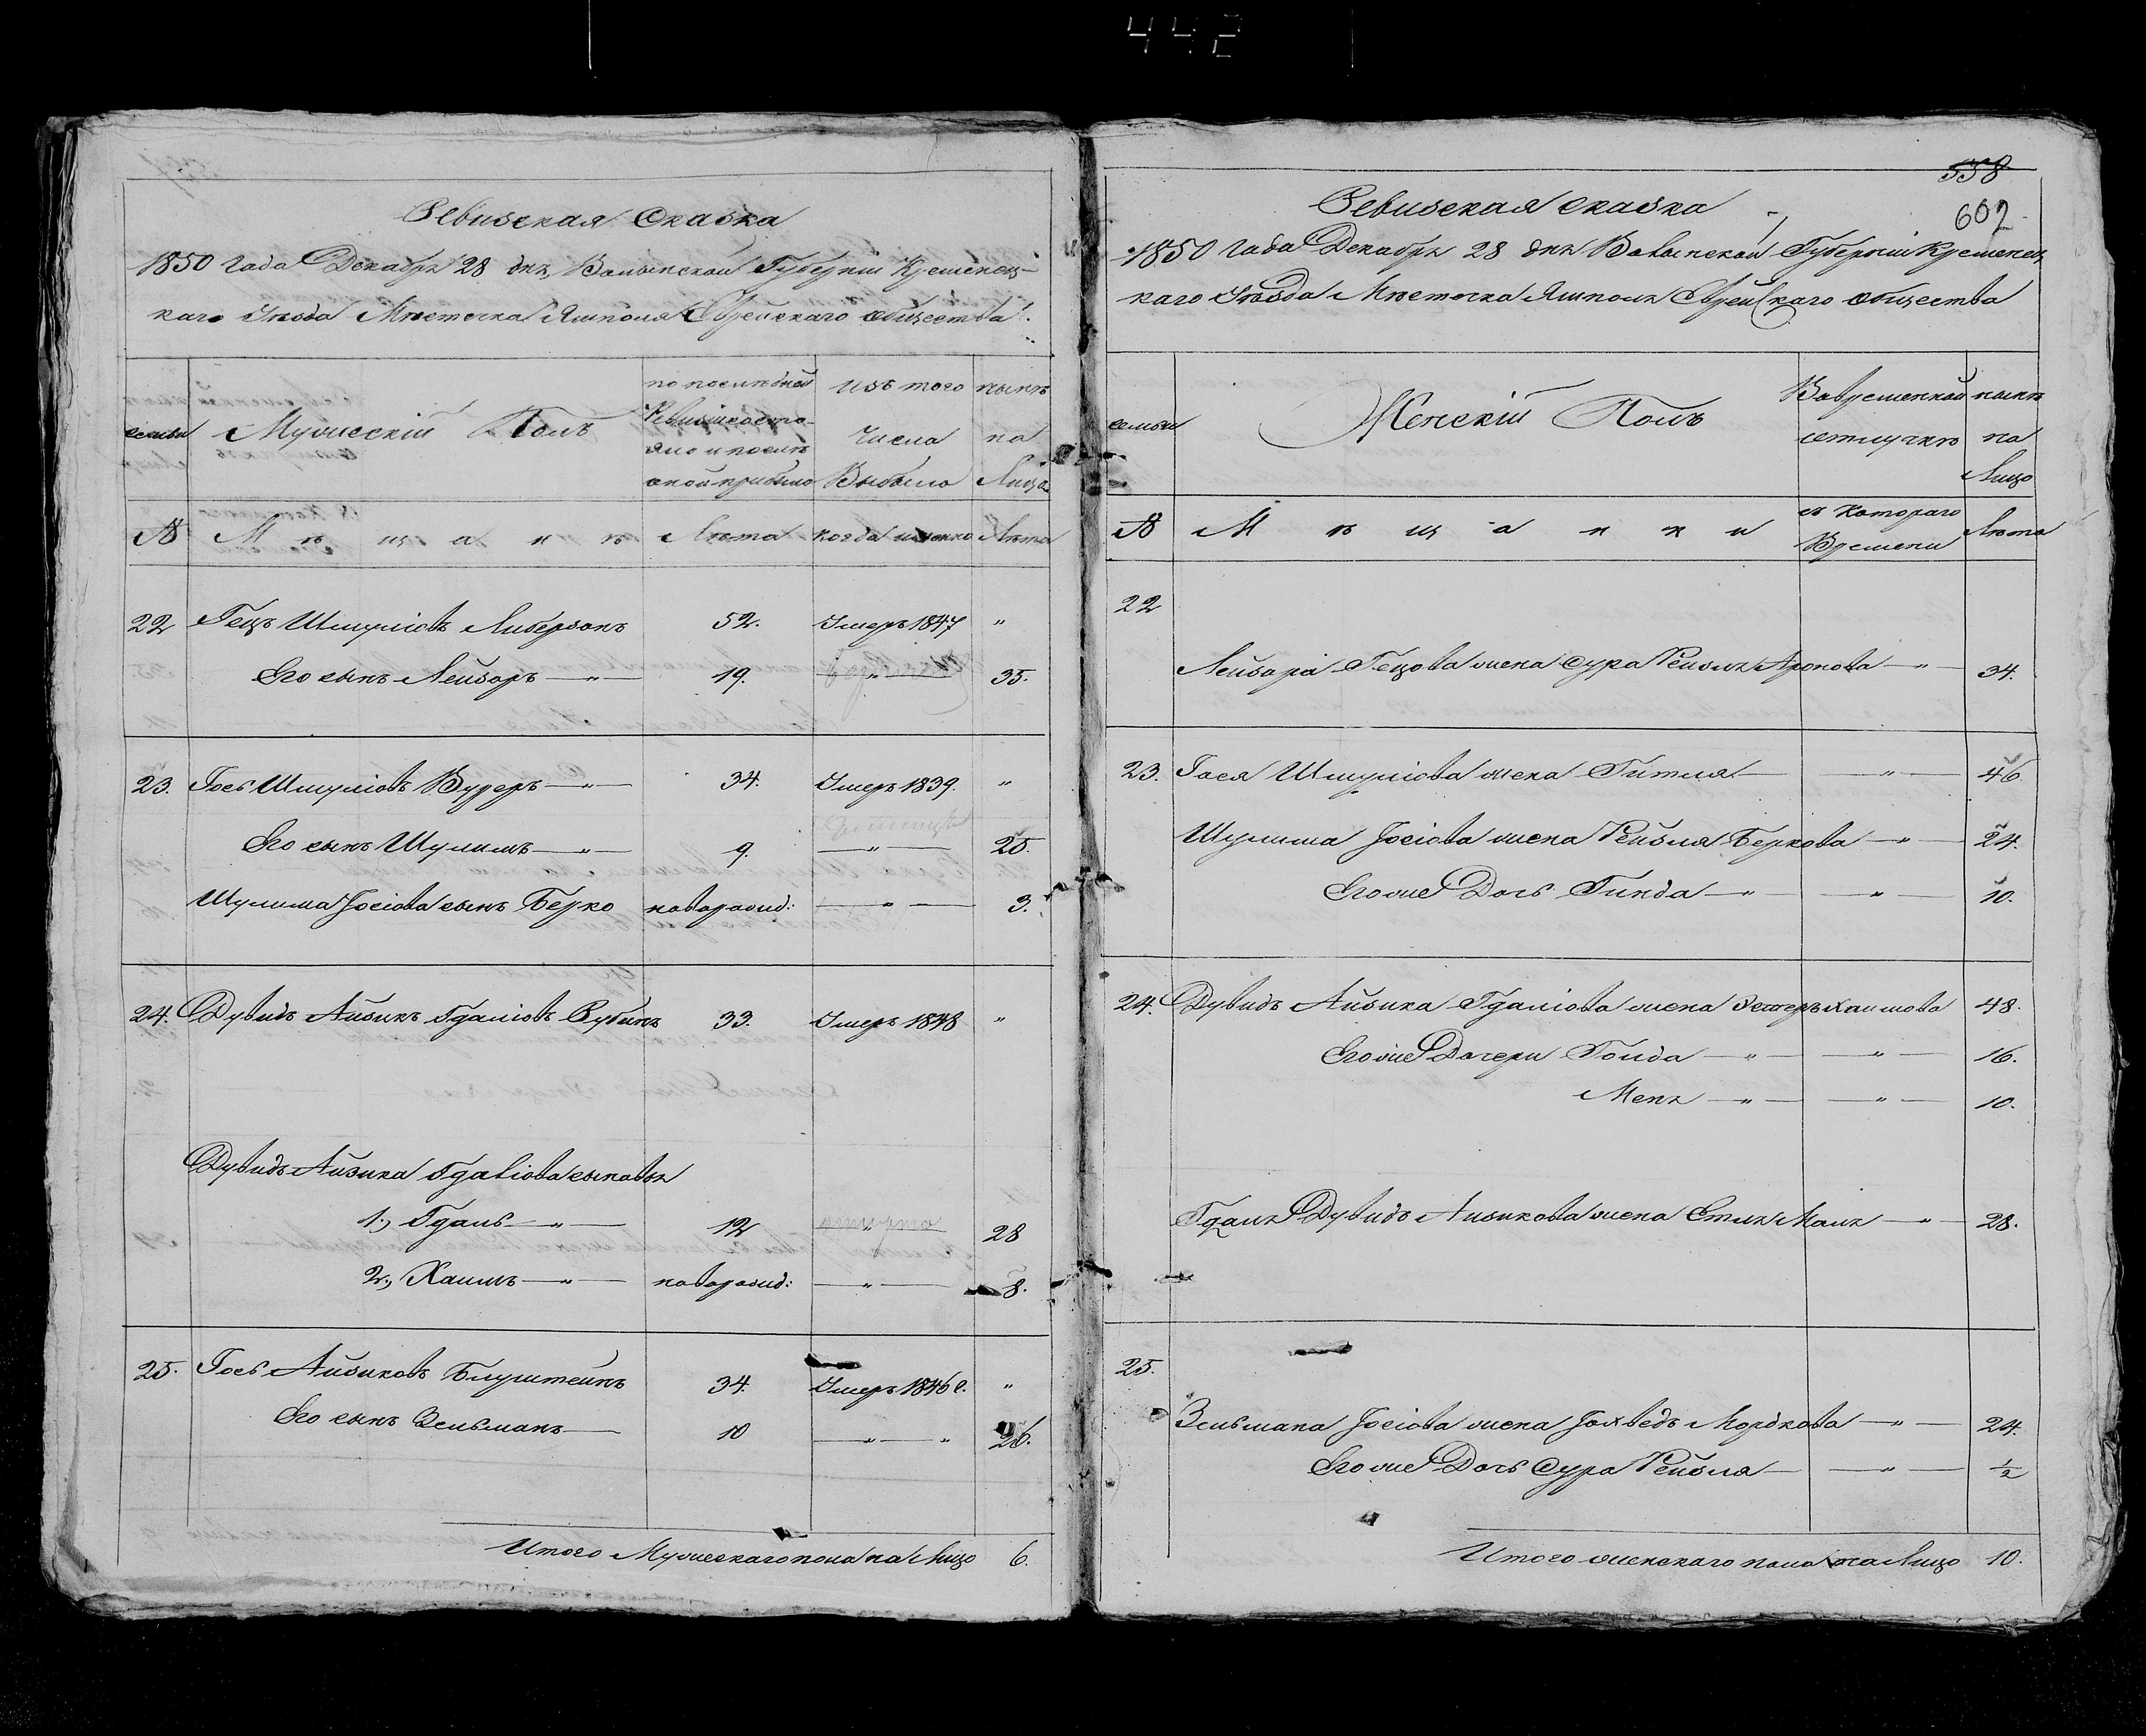 442
Ревизская Сказка
1850 Года Декабря 28 дня, Волынской Губерніи Кременец-
каго Уѣзда Мѣстечка Ямполя Еврейскаго общества.
семьи
Мужескій Полъ
по послѣдней
Ревизіи состо-
яло и послѣ
оной прибыло
изъ того
числа
Выбыло
нынѣ
на
Лицо
№
М ѣ щ а н ѣ
Лѣта
когда именно
Лѣта
22 Гецъ Шмуліовъ Либерзонъ 52. Умеръ 1847 "
Его сынъ Лейзоръ — " — 19. " 35.
23. Іось Шмуліовъ Вуреръ — " — 34. Умеръ 1839. "
Его сынъ Шулимъ — " — 9. — " — 25.
Шулима Іосіова сынъ Берко новорожд: — " — 3.
24. Дувидъ Айзикъ Гдаліовъ Рубинъ 33. Умеръ 1848 "
Дувидъ Айзика Гдаліова сыновья
1., Гдаль — " — 12 " 28
2., Хаимъ — " — новорожд: — " — 8.
25. Іось Айзиковъ Блуштейнъ 34. Умеръ 1846 г. "
Его сынъ Зельманъ — 10 — " — " 26.
Итого Мужескаго пола на Лицо 6.
558
602
Ревизская сказка
1850 Года Декабря 28 дня Волынской Губерніи Кременец
каго Уѣзда Мѣстечка Ямполя Еврейскаго общества
семьи
Женскій Полъ
Во временной
отлучкѣ
нынѣ
на
Лицо
№
М ѣ щ а н к и
съ котораго
Времени
Лѣта
22
Лейзора Гецова жена Сура Рейзля Аронова — " — 34.
23. Іося Шмуліова жена Гитля — — " — 46.
Шулима Іосіова жена Рейзля Беркова — " — 24.
Его же Дочь Гинда — " — — " — 10.
24. Дувидъ Айзика Гдаліова жена Эстеръ Хаимова 48.
Его же Дочери Голда — " — — " — 16.
Меня — " — — " — 10.
Гдаля Дувидъ Айзикова жена Етля Маля — " — 28.
25.
Зельмана Іосіова жена Іохведъ Мордкова — " — 24.
Его же Дочь Сура Рейзля — — " — ½
Итого женскаго пола на Лицо 10.